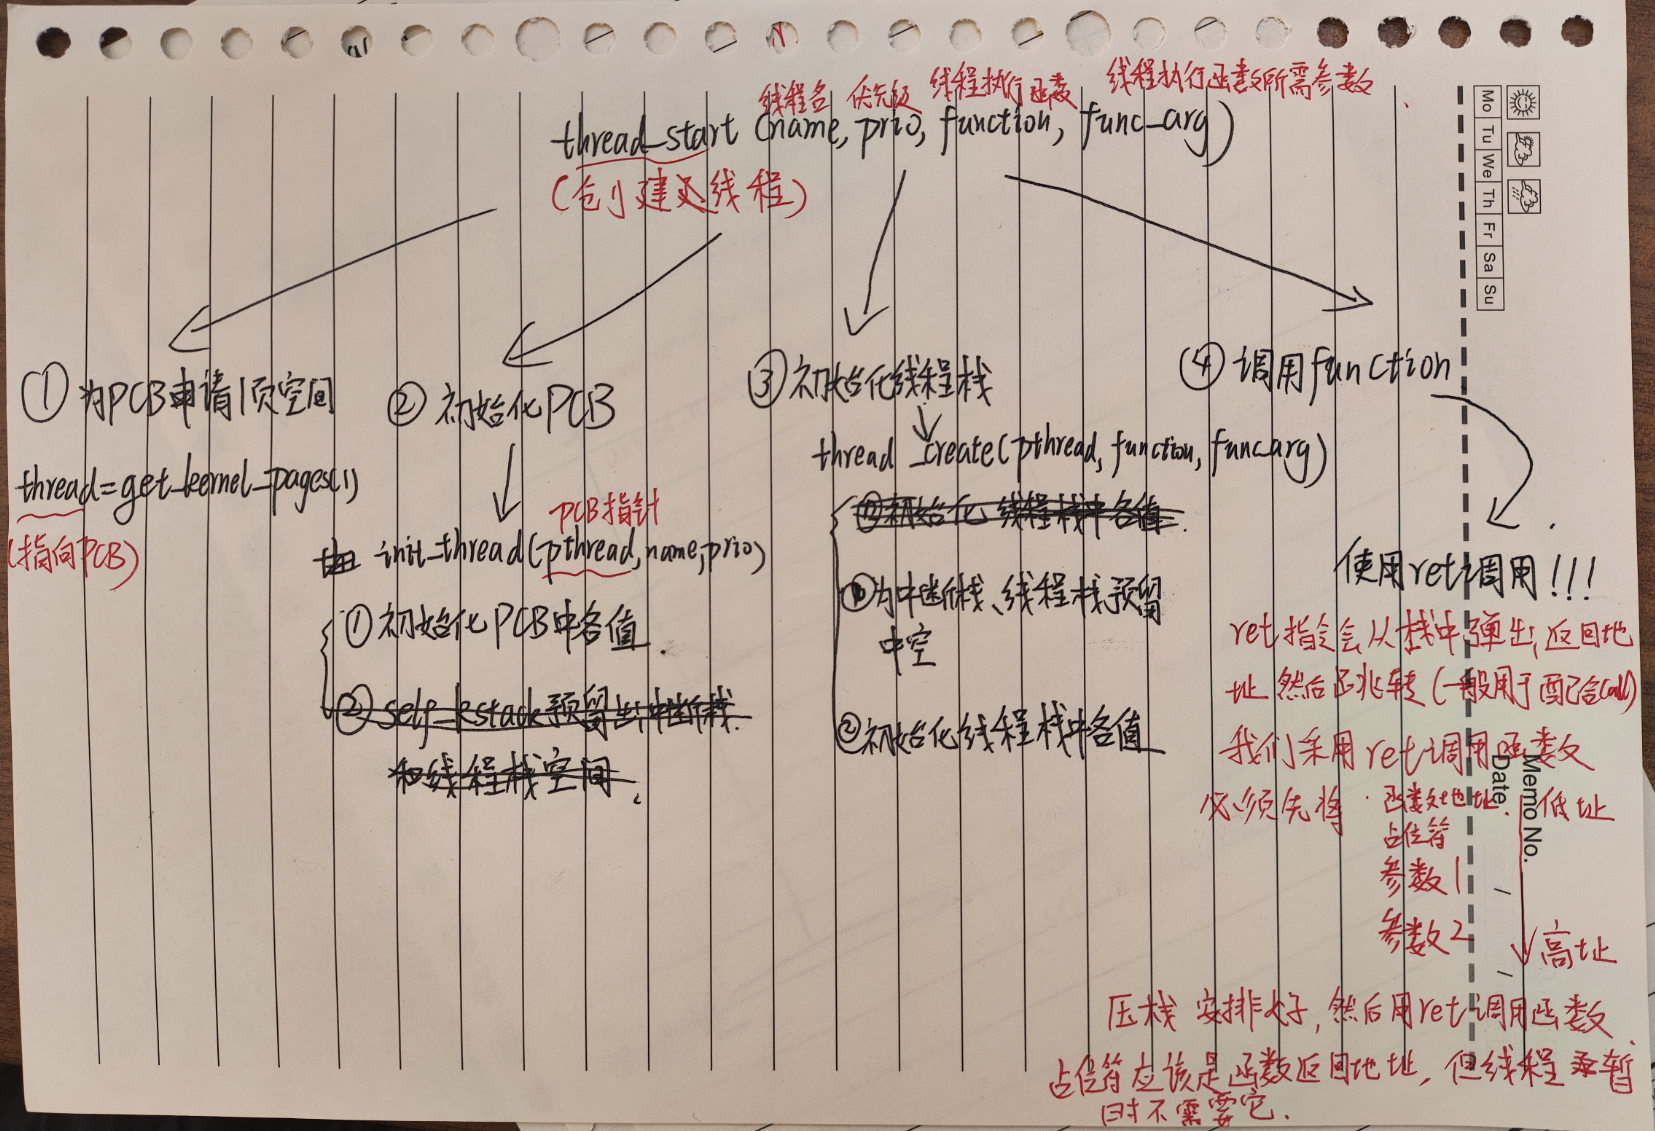 线程名 优先级 线程执行函数 线程执行函数所需参数
thread_start (name, prio, function, func_arg)
(创建线程)
① 为PCB申请1页空间
thread=get_kernel_pages(1)
(指向PCB)
② 初始化PCB
PCB指针
init_thread(pthread,name,prio)
① 初始化PCB中各值
② self_kstack预留出中断栈
和线程栈空间
③ 初始化线程栈
thread_create(pthread, function, func_arg)
①初始化线程栈中各值
①为中断栈、线程栈预留
中空
②初始化线程栈中各值
④ 调用function
使用ret调用!!!
ret指令会从栈中弹出返回地
址然后跳转(一般用于配合call)
我们采用ret调用函数
必须先将 函数地址 低址
占位符
参数1
参数2 高址
压栈 安排好,然后用ret调用函数
占位符应该是函数返回地址,但线程暂
时不需要它.
Mo Tu We Th Fr Sa Su
Memo No.
Date / /